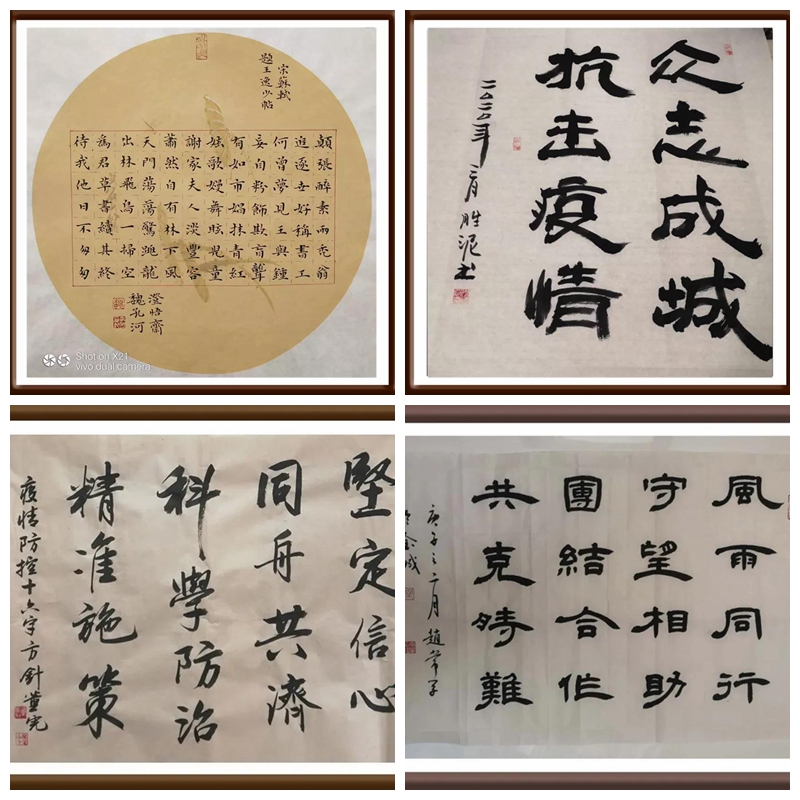 宋蘇軾
題王逸少帖
顛張醉素兩禿翁
追逐世好稱書工
何曾夢見王與鍾
妄自粉飾欺盲聾
有如市娼抹青紅
妖歌嫚舞眩兒童
謝家夫人淡豐容
蕭然自有林下風
天門蕩蕩驚跳龍
出林飛鳥一掃空
爲君草書續其終
待我他日不匆匆
澄悟齋
魏孔河
Shot on X21
vivo dual camera
众志成城
抗击疫情
二〇二〇年二月 胜泥书
堅定信心
同舟共濟
科學防治
精准施策
疫情防控十六字方針
風雨同行
守望相助
團結合作
共克時難
庚子之二月 趙
金城